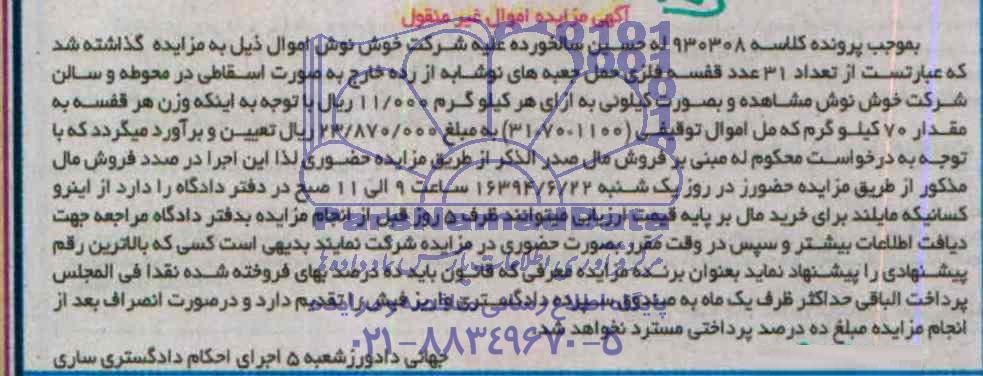 آگهی مزایده اموال غیر منقول
بموجب پرونده کلاسه ۹۳۰۳۰۸ له حسین سالخورده علیه شرکت خوش نوش اموال ذیل به مزایده گذاشته شد
که عبارتست از تعداد ۳۱ عدد قفسه فلزی حمل جعبه های نوشابه از رده خارج به صورت اسقاطی در محوطه و سالن
شرکت خوش نوش مشاهده و بصورت کیلوئی به ازای هر کیلو گرم ۱۱/۰۰۰ ریال با توجه به اینکه وزن هر قفسه به
مقدار ۷۰ کیلو گرم که مل اموال توقیفی (۳۱/۷۰۰۱۱۰۰) به مبلغ ۲۳/۸۷۰/۰۰۰ ریال تعیین و برآورد میگردد که با
توجه به درخواست محکوم له مبنی بر فروش مال صدر الذکر از طریق مزایده حضوری لذا این اجرا در صدد فروش مال
مذکور از طریق مزایده حضورز در روز یک شنبه ۱۶۳۹۴/۶/۲۲ ساعت ۹ الی ۱۱ صبح در دفتر دادگاه را دارد از اینرو
کسانیکه مایلند برای خرید مال بر پایه قیمت ارزیابی میتوانند ظرف ۵ روز قبل از انجام مزایده بدفتر دادگاه مراجعه جهت
دیافت اطلاعات بیشتر و سپس در وقت مقرر بصورت حضوری در مزایده شرکت نمایند بدیهی است کسی که بالاترین رقم
پیشنهادی را پیشنهاد نماید بعنوان برنده مزایده معرفی که قانون باید ده درصد بهای فروخته شده نقدا فی المجلس
پرداخت الباقی حداکثر ظرف یک ماه به صندوق سپرده دادگستری واریز فیش را تقدیم دارد و درصورت انصراف بعد از
انجام مزایده مبلغ ده درصد پرداختی مسترد نخواهد شد
جهانی دادورز شعبه ۵ اجرای احکام دادگستری ساری
ParsNamadData
پایگاه اطلاع رسانی
۰۲۱-۸۸۳۴۹۶۷۰-۵